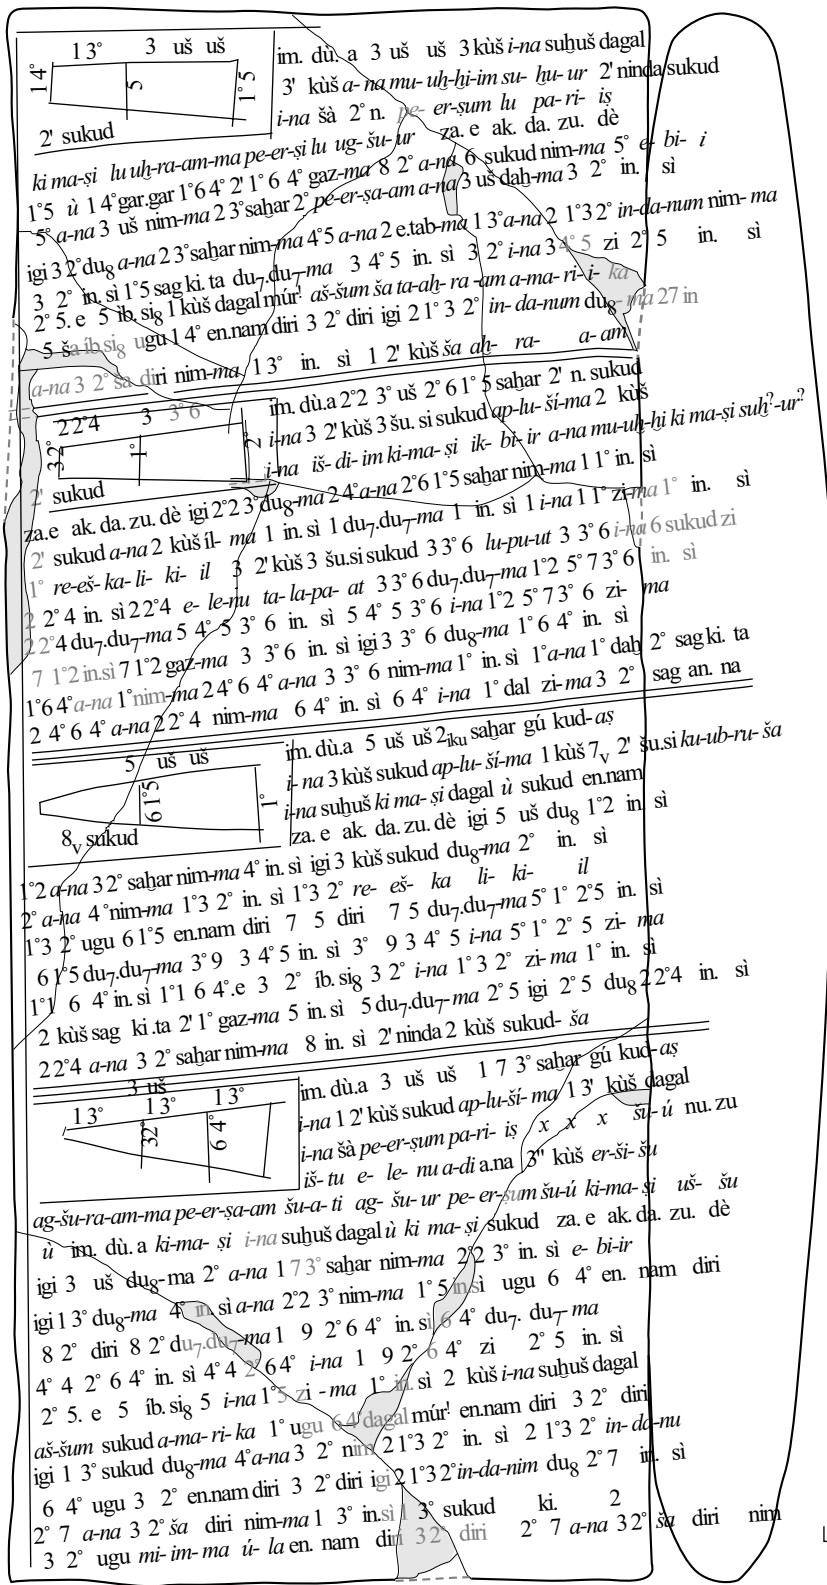 1 3° 3 uš uš
1 4° 5 1° 5
2' sukud
im. dù. a 3 uš uš 3 kùš i-na suḫuš dagal
3' kùš a-na mu-uḫ-ḫi-im su-ḫu-ur 2' ninda sukud
i-na šà 2° n. pe-er-ṣum lu pa-ri-iṣ
ki ma-ṣi lu uḫ-ra-am-ma pe-er-ṣi lu ug-šu-ur za.e ak.da.zu.dè
1°5 ù 1 4° gar.gar 1°6 4° 2' 1° 6 4° gaz-ma 8 2° a-na 6 sukud nim-ma 5° e-bi-i
5° a-na 3 uš nim-ma 2 3° saḫar 2° pe-er-ṣa-am a-na 3 uš daḫ-ma 3 2° in. sì
igi 3 2° du8 a-na 2 3° saḫar nim-ma 4°5 a-na 2 e.tab-ma 1 3° a-na 2 1°3 2° in-da-num nim-ma
3 2° in. sì 1°5 sag ki. ta du7.du7-ma 3 4° 5 in. sì 3 2° i-na 3 4° 5 zi 2° 5 in. sì
2° 5. e 5 íb.sig8 1 kùš dagal múr! aš-šum ša ta-aḫ-ra-am a-ma-ri-i-ka
5 ša íb.sig8 ugu 1 4° en.nam diri 3 2° diri igi 2 1° 3 2° in-da-num du8-ma 27 in
a-na 3 2° ša diri nim-ma 1 3° in. sì 1 2' kùš ša aḫ-ra-a-am
2 2°4 3 3°6
3 2° 1° 2°
2' sukud
im. dù.a 2°2 3° uš 2°6 1° 5 saḫar 2' n. sukud
i-na 3 2' kùš 3 šu. si sukud ap-lu-ší-ma 2 kùš
i-na iš-di-im ki-ma-ṣi ik-bi-ir a-na mu-uḫ-ḫi ki ma-ṣi suḫ?-ur?
za.e ak. da. zu. dè igi 2°2 3° du8-ma 2 4° a-na 2°6 1°5 saḫar nim-ma 1 1° in. sì
2' sukud a-na 2 kùš íl-ma 1 in. sì 1 du7.du7-ma 1 in. sì 1 i-na 1 1° zi-ma 1° in. sì
1° re-eš-ka-li-ki-il 3 2' kùš 3 šu.si sukud 3 3° 6 lu-pu-ut 3 3° 6 i-na 6 sukud zi
2 2° 4 in. sì 2 2°4 e-le-nu ta-la-pa-at 3 3° 6 du7.du7-ma 1°2 5° 7 3° 6 in. sì
2 2°4 du7.du7-ma 5 4° 5 3° 6 in. sì 5 4° 5 3° 6 i-na 1°2 5° 7 3° 6 zi-ma
7 1°2 in.sì 7 1°2 gaz-ma 3 3° 6 in. sì igi 3 3° 6 du8-ma 1° 6 4° in. sì
1°6 4° a-na 1° nim-ma 2 4° 6 4° a-na 3 3° 6 nim-ma 1° in. sì 1° a-na 1° daḫ 2° sag ki. ta
2 4° 6 4° a-na 2 2° 4 nim-ma 6 4° in. sì 6 4° i-na 1° dal zi-ma 3 2° sag an. na
5 uš uš
6 1°5 1°
8v sukud
im. dù.a 5 uš uš 2iku saḫar gú kud-aṣ
i-na 3 kùš sukud ap-lu-ší-ma 1 kùš 7v 2' šu.si ku-ub-ru-ša
i-na suḫuš ki ma-ṣi dagal ù sukud en.nam
za. e ak. da. zu. dè igi 5 uš du8 1°2 in. sì
1°2 a-na 3 2° saḫar nim-ma 4° in. sì igi 3 kùš sukud du8-ma 2° in. sì
2° a-na 4° nim-ma 1°3 2° in. sì 1°3 2° re-eš-ka li-ki-il
1°3 2° ugu 6 1°5 en.nam diri 7 5 diri 7 5 du7.du7-ma 5° 1° 2°5 in. sì
6 1°5 du7.du7-ma 3° 9 3 4° 5 in. sì 3° 9 3 4° 5 i-na 5° 1° 2° 5 zi-ma
1°1 6 4° in. sì 1°1 6 4°.e 3 2° íb.sig8 3 2° i-na 1°3 2° zi-ma 1° in. sì
2 kùš sag ki.ta 2' 1° gaz-ma 5 in. sì 5 du7.du7-ma 2° 5 igi 2° 5 du8 2 2°4 in. sì
2 2°4 a-na 3 2° saḫar nim-ma 8 in. sì 2' ninda 2 kùš sukud-ša
3 uš
1 3° 1 3° 1 3°
3 2° 6 4°
im. dù.a 3 uš uš 1 7 3° saḫar gú kud-aṣ
i-na 1 2' kùš sukud ap-lu-ší-ma 1 3' kùš dagal
i-na šà pe-er-ṣum pa-ri-iṣ x x x šu-ú nu. zu
iš-tu e-le-nu a-di a.na 3" kùš er-ši-šu
ag-šu-ra-am-ma pe-er-ṣa-am šu-a-ti ag-šu-ur pe-er-ṣum šu-ú ki-ma-ṣi uš-šu
ù im. dù. a ki-ma-ṣi i-na suḫuš dagal ù ki ma-ṣi sukud za. e ak. da. zu. dè
igi 3 uš du8-ma 2° a-na 1 7 3° saḫar nim-ma 2°2 3° in. sì e-bi-ir
igi 1 3° du8-ma 4° in. sì a-na 2°2 3° nim-ma 1° 5 in.sì ugu 6 4° en. nam diri
8 2° diri 8 2° du7.du7-ma 1 9 2° 6 4° in. sì 6 4° du7. du7-ma
4° 4 2° 6 4° in. sì 4° 4 2° 6 4° i-na 1 9 2° 6 4° zi 2° 5 in. sì
2° 5. e 5 íb. sig8 5 i-na 1°5 zi-ma 1° in. sì 2 kùš i-na suḫuš dagal
aš-šum sukud a-ma-ri-ka 1° ugu 6 4 dagal múr! en.nam diri 3 2° diri
igi 1 3° sukud du8-ma 4° a-na 3 2° nim 2 1°3 2° in. sì 2 1°3 2° in-da-nu
6 4° ugu 3 2° en.nam diri 3 2° diri igi 2 1°3 2° in-da-nim du8 2° 7 in. sì
2° 7 a-na 3 2° ša diri nim-ma 1 3° in.sì 1 3° sukud ki. 2
3 2° ugu mi-im-ma ú-la en. nam diri 3 2° diri 2° 7 a-na 3 2° ša diri nim